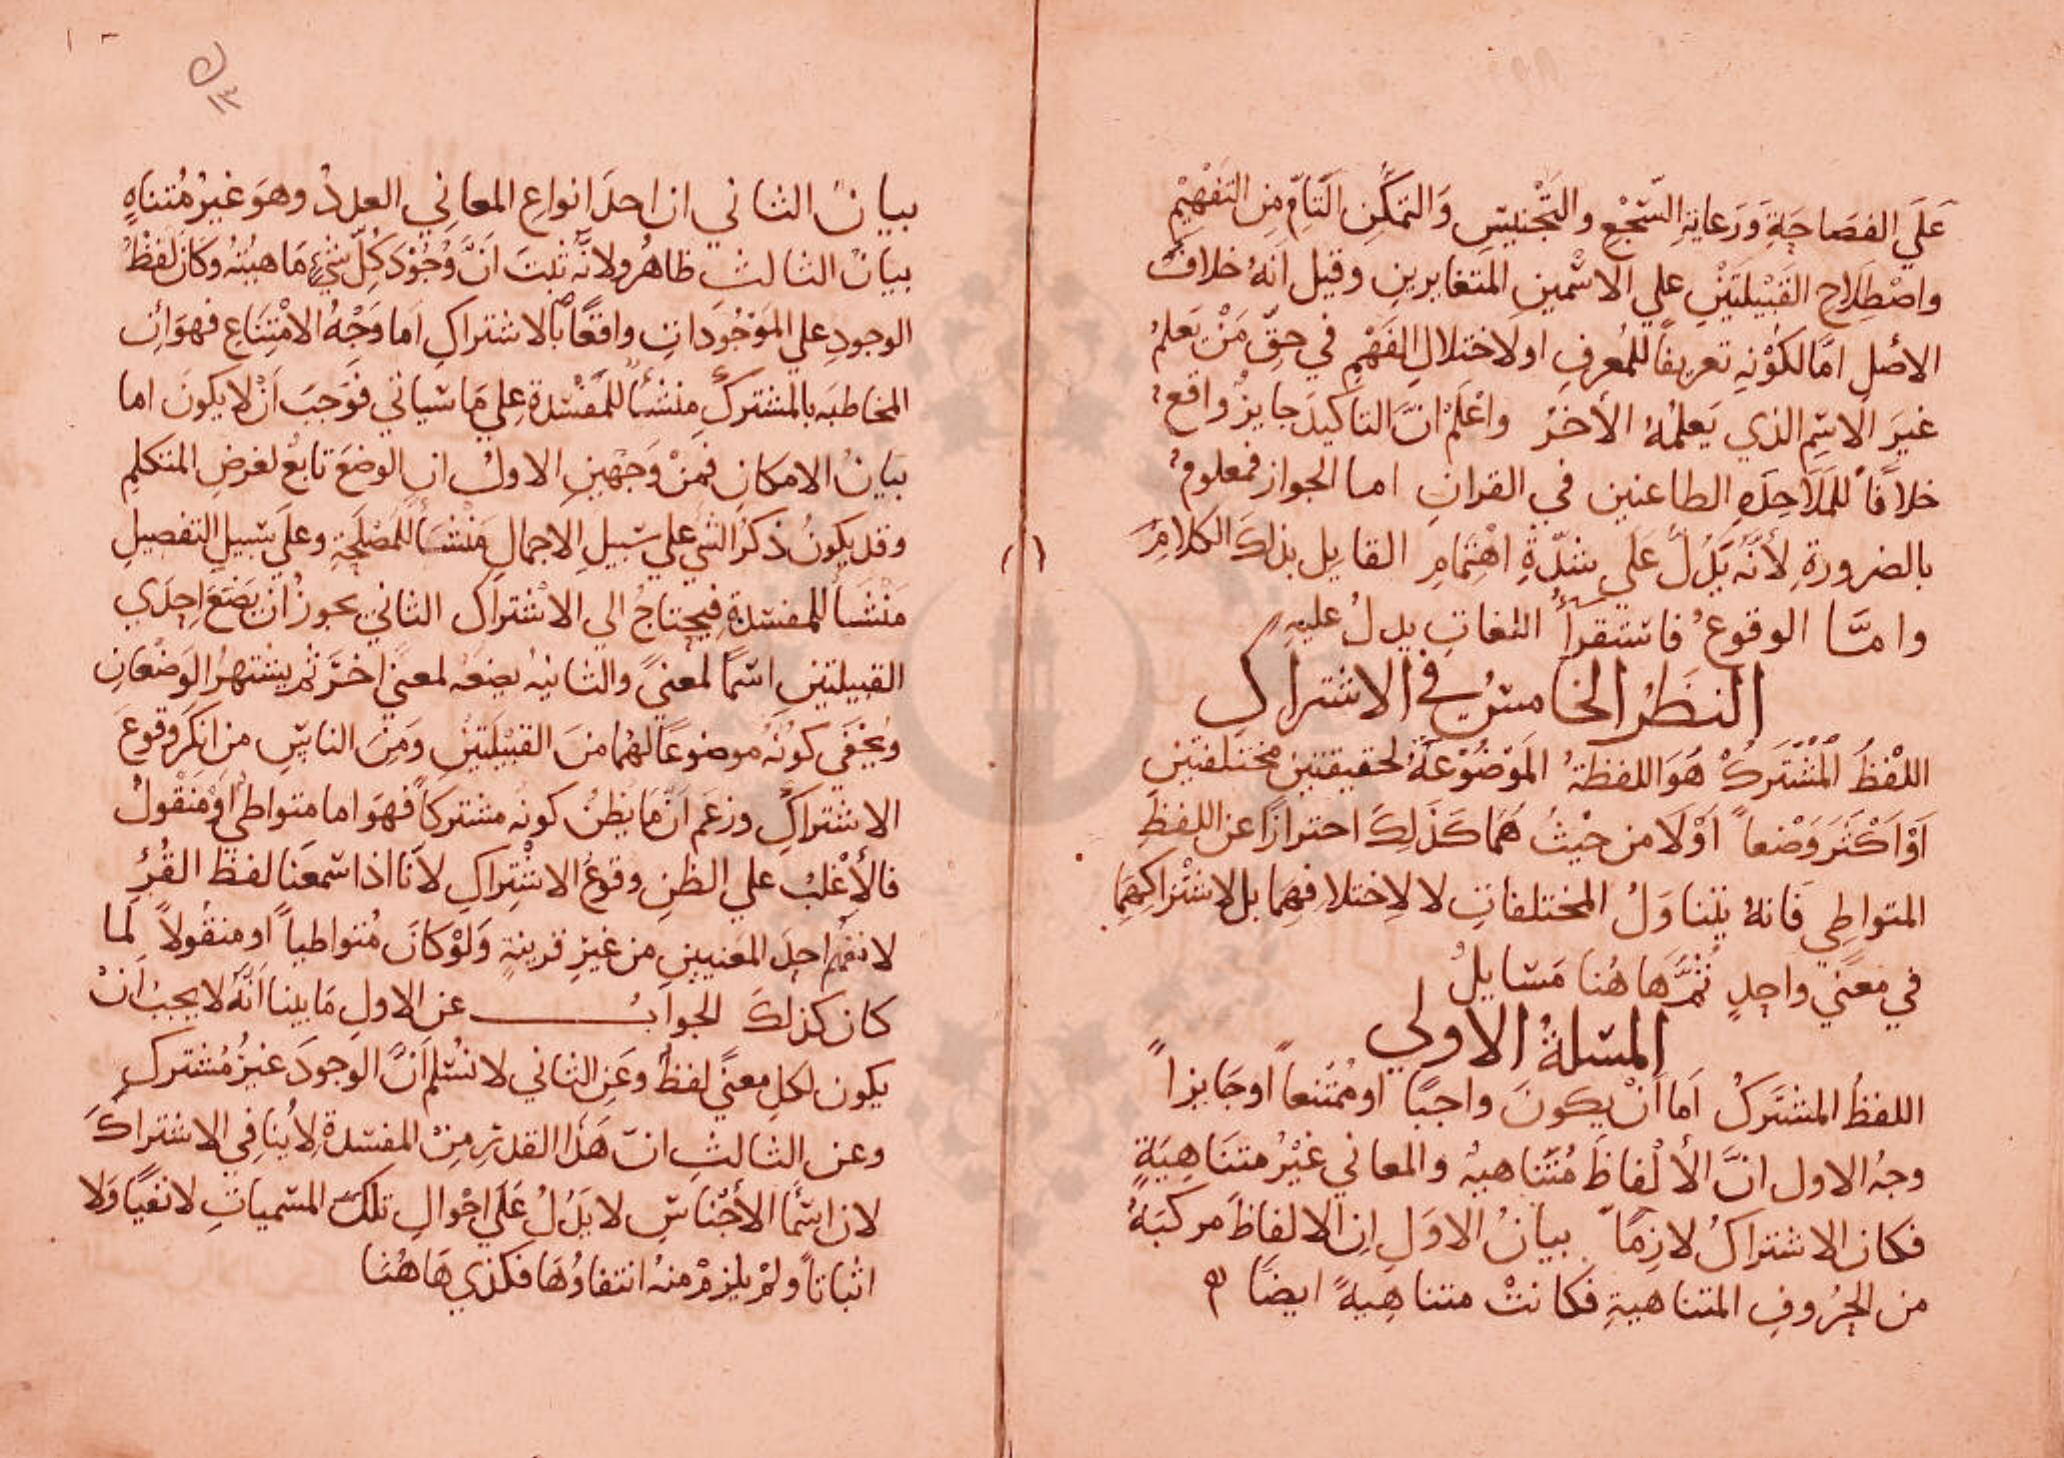 عَلَي الفصَاحَةِ وَرَعايةِ السّجْعِ والتّجْنيسِ وَالتمكُّنِ التّامِّ مِنَ التفْهيْمِ
واصْطِلَاحِ القَبْيلتَيْنِ علي الاسْمينِ المتغايرينِ وقيل انهُ خلافُ
الاصْلِ امَّا لكوْنهِ تعريفاً للمُعرفِ او لاختلالِ الفَهْمِ في حقّ مَنْ يَعلمُ
غيَر الاسْمِ الذي يَعلمُهُ الأخرُ واعْلمْ انَّ التاكيدَ جايزٌ واقعٌ
خلافاً للمَلَاحِدَهِ الطاعنين في القرانِ اما الجواز فمعلومٌ
بالضرورةِ لأنّهُ يَدُلُّ عَلَي شدّةِ اهْتمامِ القايل بذلكَ الكلامِ
وامّا الوقوعُ فاستقرأُ اللغاتِ يدلُ عليهِ
النظرُ الخامسُ في الاشتراكِ
اللفْظُ الْمُشْتَركْ هُوَ اللفظةُ الموْضُوْعَةُ لحقيقتينِ مختلفتينِ
اَوْ اَكْثَرَ وَضْعاً اَوْلَا من حيْثُ هُمَا كَذَلِكَ احترازًا عن اللفظِ
المتواطِي فَانهُ يتناوَلُ المختلفاتِ لا لاِختلافِهِمَا بل لاشتراكِهِمَا
في معنًي واحِدٍ ثُمَّ هَا هُنا مَسَايلُ
المسْلةُ الاولي
اللفظُ المشتَركُ اَما اَنْ يكونَ واجبًا او مُمْتنعاً او جَايزاً
وجهُ الاول انَّ الأَلْفاظَ مُتَناهيهُ والمعاني غيْرُ متنَاهِيَةٍ
فكان الاشتراكُ لازِمًا بيانُ الاوَلِ انِ الالفاظَ مركبَهُ
من الحُرُوفِ المتناهيةِ فكانتْ متناهِيهً ايضًا
١٣
بيانُ الثاني ان احدَ انواعِ المعاني العددُ وهوَ غيْرُ مُتناهٍ
بيانُ الثالثِ ظاهرُ ولانّه ثبتَ انَّ وُجُوْدَ كُلّ شيءٍ مَاهيتُهُ وكانَ لفظُ
الوجودِ علي الموْجُوداتِ واقعًا بالاشتراكِ اَما وَجْهُ الامْتناعِ فهوَ اَن
المخاطبَه بالمشتركِ منشأً للمفْسَدة عِلي مَا سياتي فَوَجبَ اَنْ لا يكونَ اما
بيَانُ الامكانِ فمنْ وَجهْينِ الاولُ انِ الوضعَ تابعُ لغرضِ المتكلمِ
وقد يكونُ ذكرُ الشي علي سَبيلِ الاجمالِ مَنْشَأً للمصْلَحَةِ وعلَي سبيلِ التفصيلِ
مَنْشَأً للمفسَدةِ فيحتاجُ الي الاشتراك الثاني يجوزُ انْ يَضعَ احدَي
القبيلتينِ اسْمًا لمعنيً والثانيهُ يضعُه لمعنيً اخرَ ثمّ يشتهرُ الوَضْعانِ
ويُخْفَي كونُهُ موضوعًا لهُما منَ القبيْلتيْنِ ومِنَ الناسِ من انكرَ وقوعَ
الاشتراكِ وزعَمَ انَّ مَا يظنُ كونه مشتركاً فهوَ اما متواطيُ اَوْ مَنقْولُ
فالأَغْلبُ علي الظنِ وقوعُ الاشْتِراكِ لاَنّا اذا سَمعْنَا لفظَ القُرْءُ
لا نفهمُ احدَ المعنيينِ من غيرِ قرينةٍ وَلَوْ كانَ مُتواطياً او منقُولاً لَما
كان كذلكَ الجوابُ عن الاولِ مَا بينا اَنَّهُ لا يجبُ انْ
يكون لكلِ معنيً لفظُ وعَنِ الثاني لا نسُلّم اَنَّ الوجودَ غيْرُ مُشتركٍ
وعن الثالثِ انّ هَذا القدرِ مِنْ المفسَدةْ لا يُنافي الاشتراكَ
لان اسْمَا الأَجْناسِ لا يَدُلُ عَلَي احْوالِ تلكَ المسَمياتِ لا نفيًا وَلا
اثباتاً ولمْ يلزمْ منهُ انتفاؤُهَا فكذي هَا هُنَا